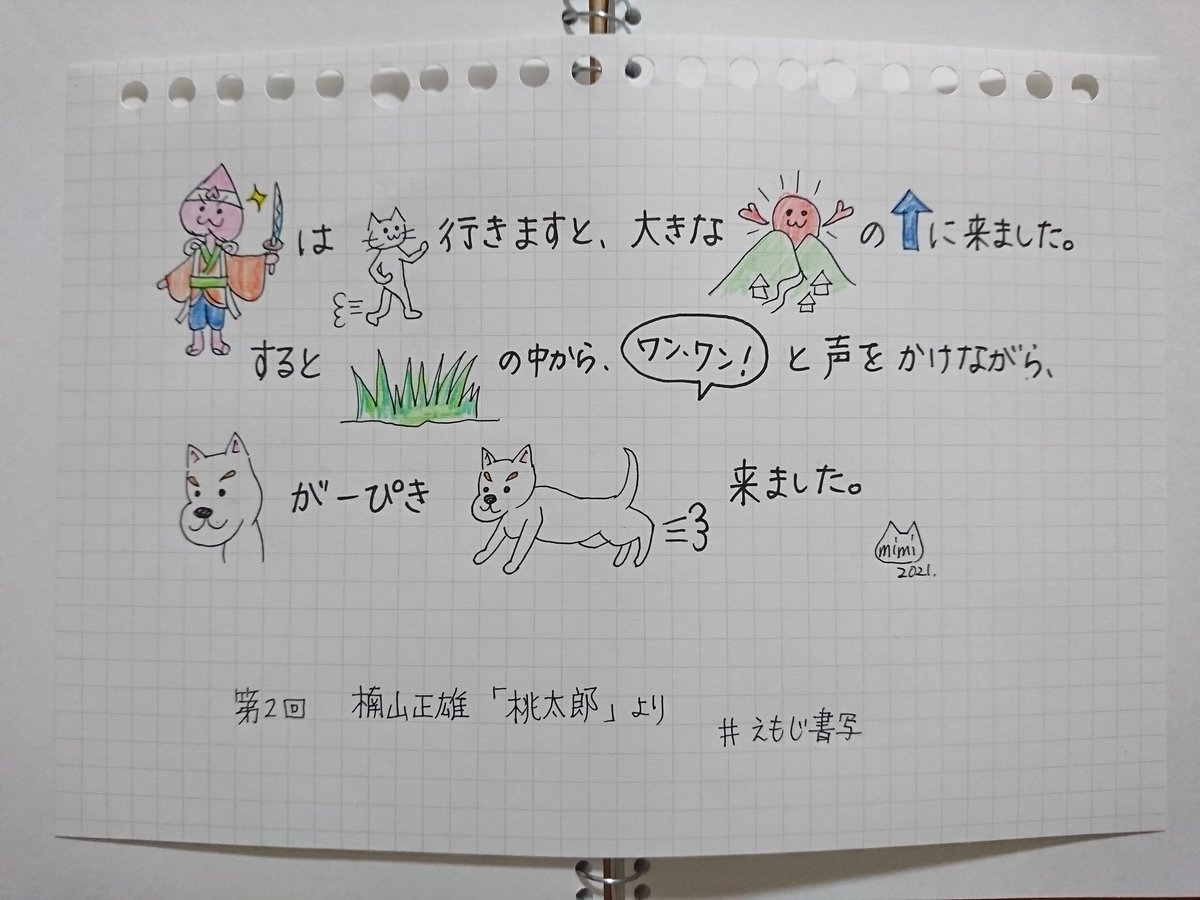 は 行きますと、大きな の に来ました。
すると の中から、ワン、ワン！と声をかけながら、
が一ぴき 来ました。
mimi
2021.
第2回 楠山正雄「桃太郎」より
#えもじ書写